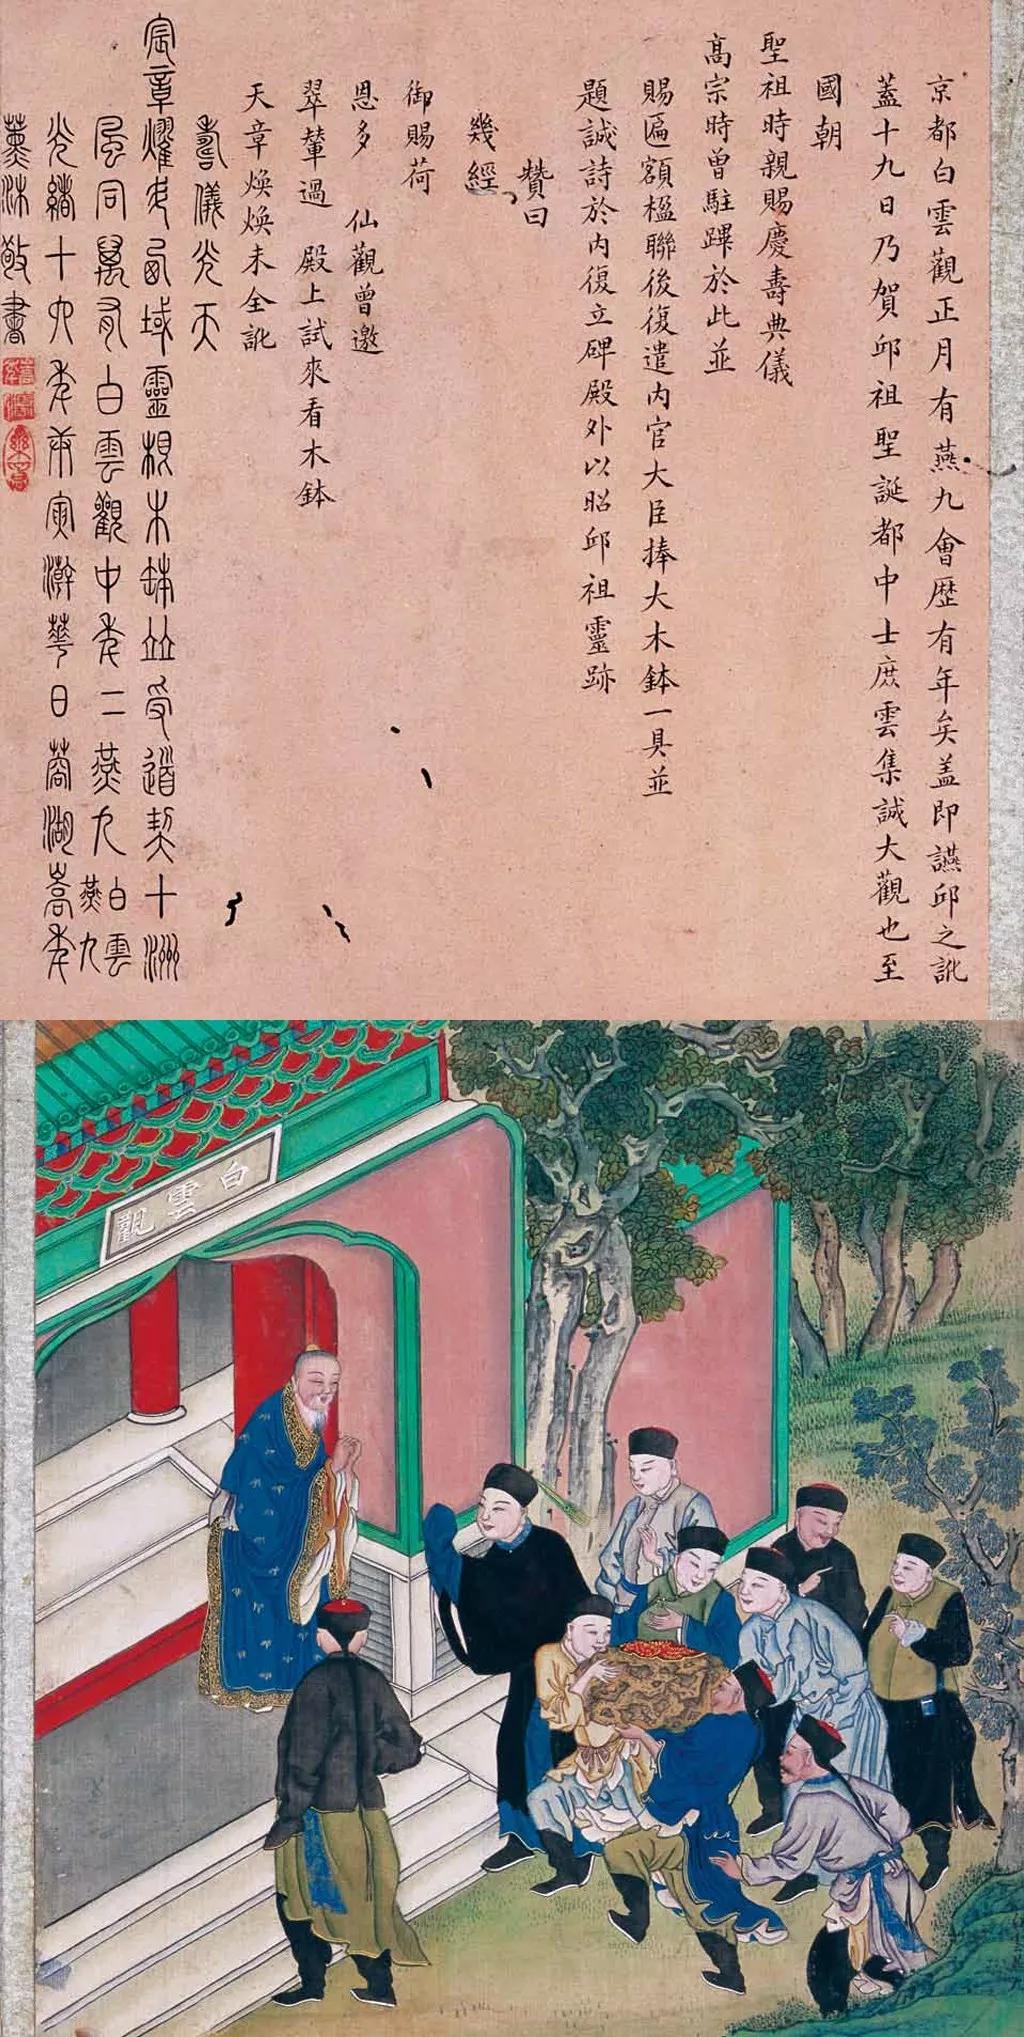 京都白雲觀正月有燕九會歷有年矣盖即讌邱之訛
蓋十九日乃賀邱祖聖誕都中士庶雲集誠大觀也至
國朝
聖祖時親賜慶壽典儀
高宗時曾駐蹕於此並
賜匾額楹聯後復遣内官大臣捧大木鉢一具並
題誠詩於内復立碑殿外以昭邱祖靈跡
贊曰
幾經
御賜荷
恩多 仙觀曾邀
翠輦過 殿上試來看木鉢
天章煥煥未全訛
壽儀光天
宸章燿 域靈根木鉢並受道契十洲
風同萬 白雲觀中年二燕九 白雲燕九
光緒十六年庚寅澣華日蓉湖嵩年
薰沐敬書
白雲觀